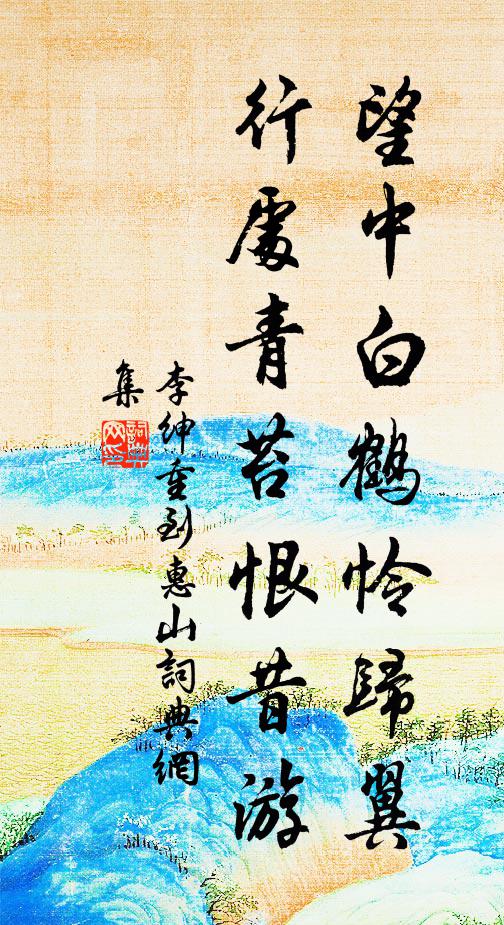 望中白鶴怜歸翼
行處青苔恨昔游
李紳重到惠山詞典網
集